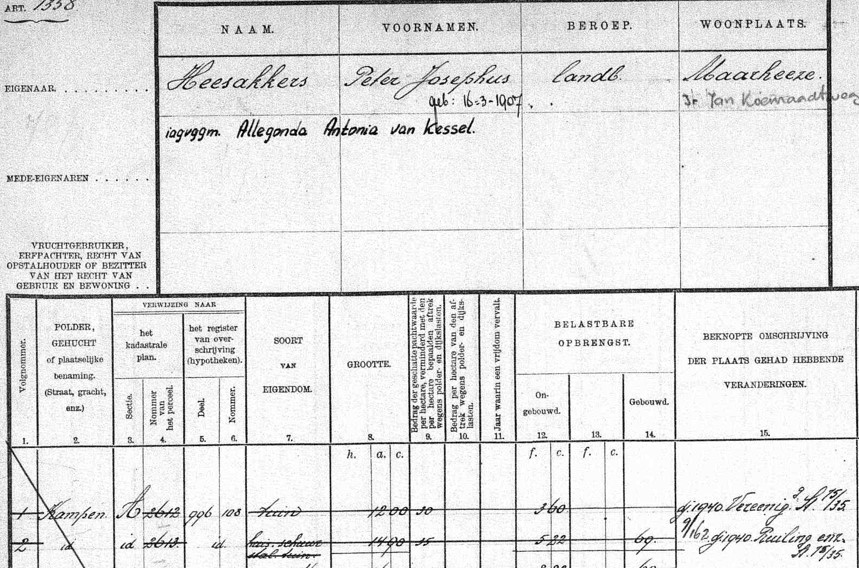 ART. 1358
NAAM. VOORNAMEN. BEROEP. WOONPLAATS.
EIGENAAR. Heesakkers Peter Josephus landb. Maarheeze.
geb: 16-3-1907
iagvggm. Allegonda Antonia van Kessel.
MEDE-EIGENAREN
VRUCHTGEBRUIKER,
ERFPACHTER, RECHT VAN
OPSTALHOUDER OF BEZITTER
VAN HET RECHT VAN
GEBRUIK EN BEWONING
Volgnommer.
1.
POLDER,
GEHUCHT
of plaatselijke
benaming.
(Straat, gracht,
enz.)
2.
VERWIJZING NAAR
het
kadastrale
plan.
Sectie.
3.
Nommer
van
het perceel.
4.
het register
van over-
schrijving
(hypotheken).
Deel.
5.
Nommer.
6.
SOORT
VAN
EIGENDOM.
7.
GROOTTE.
8.
Bedrag der geschatte pachtwaarde
per hectare, verminderd met den
per hectare bepaalden aftrek
wegens polder- en dijkslasten.
9.
Bedrag per hectare van den af-
trek wegens polder- en dijks-
lasten.
10.
Jaar waarin een vrijdom vervalt.
11.
BELASTBARE
OPBRENGST.
On-
gebouwd.
12.
13.
Gebouwd.
14.
BEKNOPTE OMSCHRIJVING
DER PLAATS GEHAD HEBBENDE
VERANDERINGEN.
15.
h. a. c. f. c. f. c.
1 Kampen A 2612 996 108 tuin 12 00 30 3 60 dj. 1940. Vereenig.
2 id id 2613 id. huis, schuur 14 90 35 5 22 69. dj. 1940. Ruiling enz.
stal, tuin